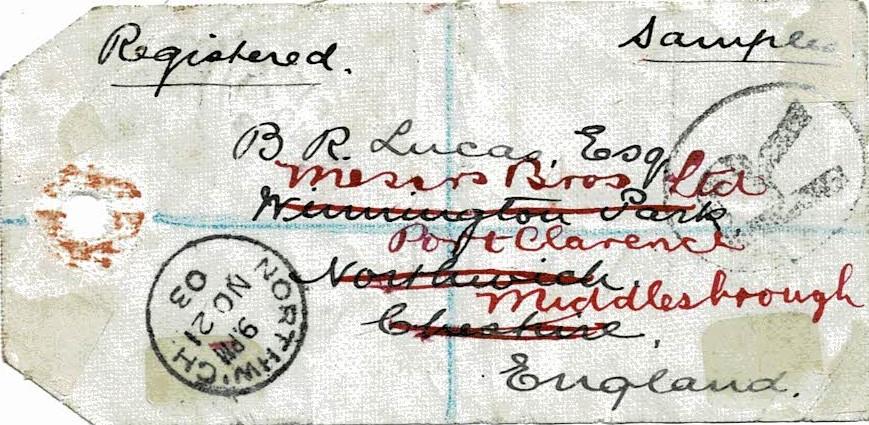 Registered.
Sample
B R. Lucas, Esq
Messrs Bros Ltd
Winnington Park
Port Clarence
Northwich
Middlesbrough
Cheshire,
England.
NORTHWICH
9. PM
NO 21
03